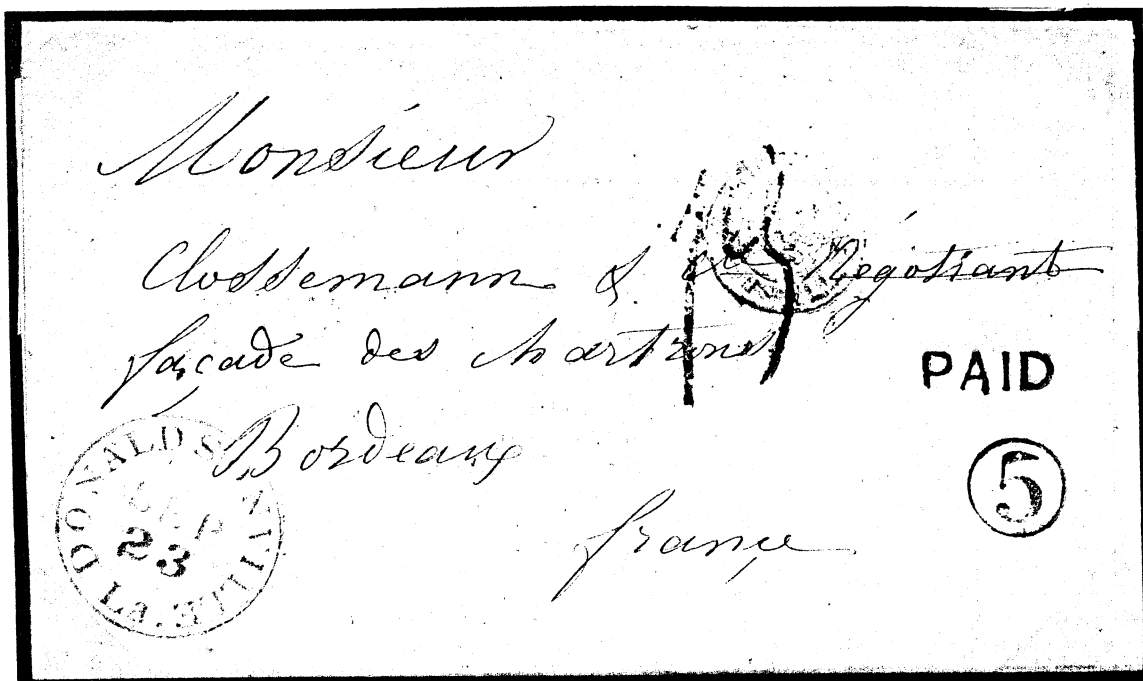 Monsieur
Clossemann & Cie Négotiant
façade des chartrons
Bordeaux
françe
PAID
5
DONALDSONVILLE LA.
SEP
23
15